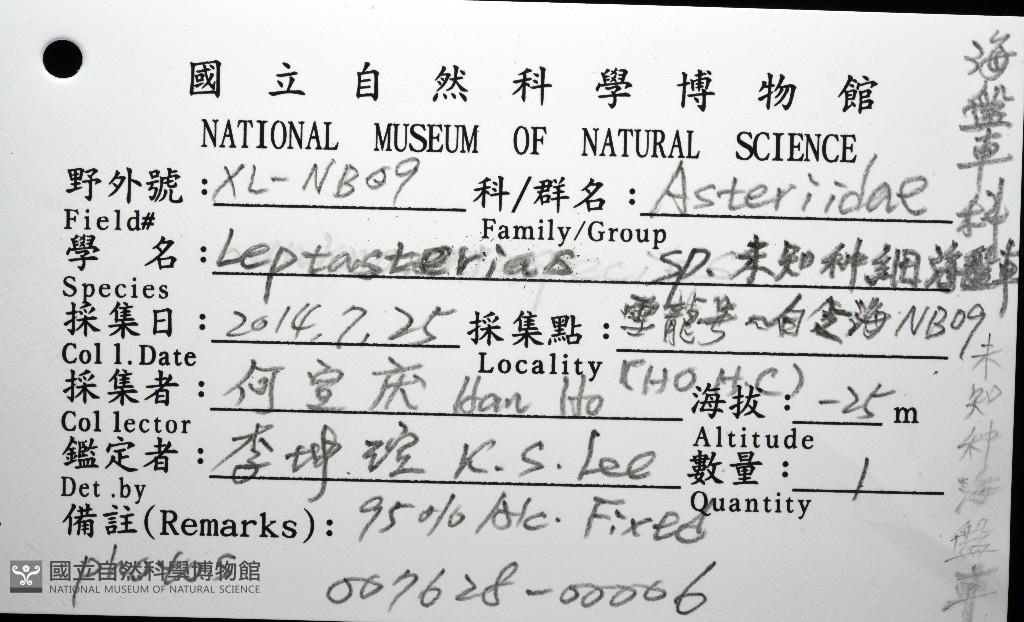 國立自然科學博物館
NATIONAL MUSEUM OF NATURAL SCIENCE
野外號:XL-NB09 科/群名:Asteriidae
Field# Family/Group
學 名:Leptasterias sp. 未知种網海盤車
Species
採集日:2014.7.25 採集點:雪龍号~白令海NB09
Coll.Date Locality
採集者:何宣庆 Han Ho (HO.H.C) 海拔:-25m
Collector Altitude
鑑定者:李坤瑄 K.S.Lee 數量:1
Det.by Quantity
備註(Remarks):95% Alc. Fixed
photos
007628-00006
海盤車科
未知种海盤車
國立自然科學博物館
NATIONAL MUSEUM OF NATURAL SCIENCE